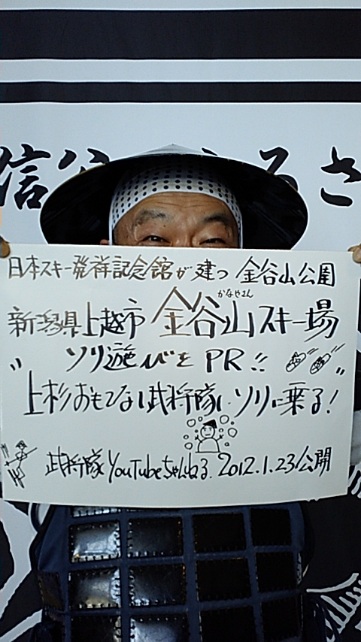 信
ふるさ
日本スキー発祥記念館が建つ 金谷山公園
かなやさん
新潟県上越市 金谷山スキー場
"ソリ遊びをPR!!"
上杉おもてなし武将隊、ソリに乗る!
武将隊YouTubeちゃんねる. 2012.1.23公開